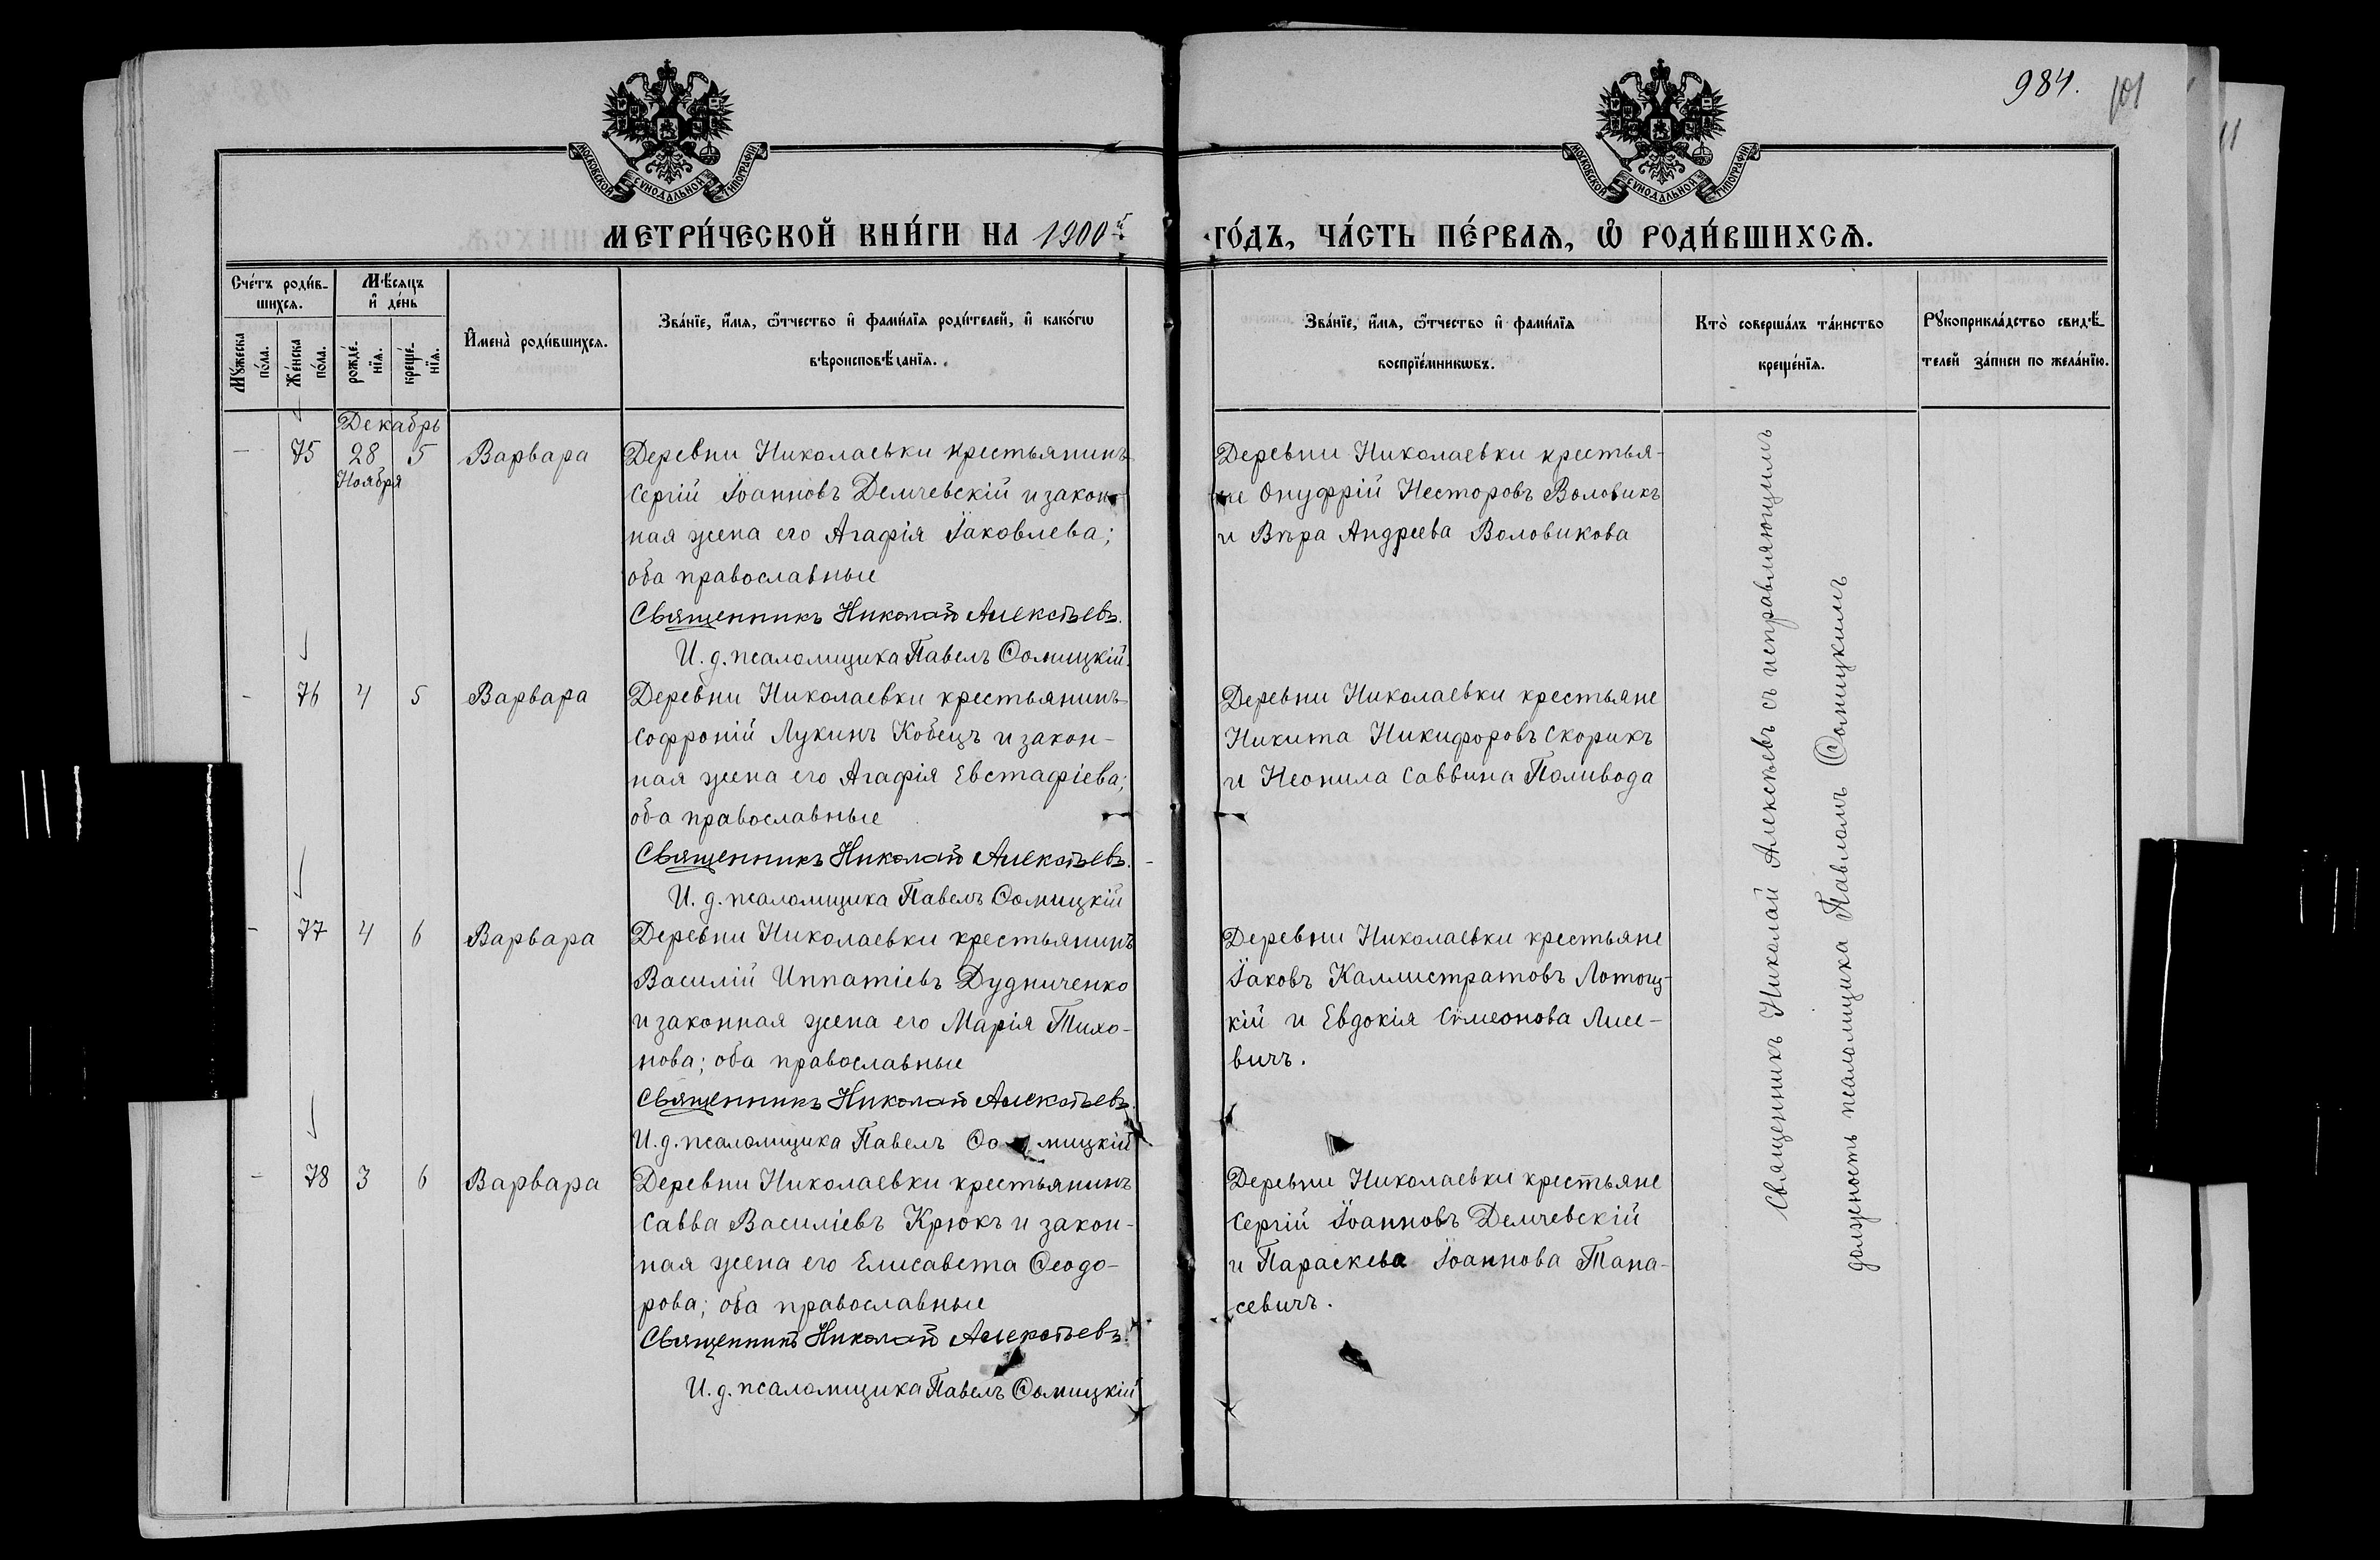 984.
101
11
МОСКОВСКОЙ СѴНОДАЛЬНОЙ ТИПОГРАФІИ
МОСКОВСКОЙ СѴНОДАЛЬНОЙ ТИПОГРАФІИ
МЕТРИ́ЧЕСКОЙ КНИ́ГИ НА 1900й
ГО́ДЪ, ЧА́СТЬ ПЕ́РВАѦ, Ѡ҆ РОДИ́ВШИХСѦ.
Сче́тъ роди́в-
шихсѧ.
Мѣ́сѧцъ
и҆ де́нь
Мꙋ́жеска
по́ла.
Же́нска
по́ла.
рожде́-
нїѧ.
креще́-
нїѧ.
И҆мена̀ роди́вшихсѧ.
Зва́нїе, и҆́мѧ, ѻ҆́тчество и҆ фами́лїѧ роди́телей, и҆ како́гѡ
вѣроисповѣ́данїѧ.
Зва́нїе, и҆́мѧ, ѻ҆́тчество и҆ фами́лїѧ
воспрїе́мникѡвъ.
Кто̀ соверша́лъ та́инство
креще́нїѧ.
Рꙋкоприкла́дство свидѣ́-
телей за́писи по жела́нїю.
Декабрь
— 75 28 5 Варвара
Ноября
Деревни Николаевки крестьянинъ
Сергій Іоанновъ Демчевскій и закон-
ная жена его Агафія Іаковлева;
оба православные
Священникъ Николай Алексѣевъ.
И. д. псаломщика Павелъ Ѳомицкій.
Деревни Николаевки крестья-
не Онуфрій Несторовъ Воловикъ
и Вѣра Андреева Воловикова
- 76 4 5 Варвара
Деревни Николаевки крестьянинъ
Софроній Лукинъ Кобецъ и закон-
ная жена его Агафія Евстафіева;
оба православные
Священникъ Николай Алексѣевъ.
И. д. псаломщика Павелъ Ѳомицкій
Деревни Николаевки крестьяне
Никита Никифоровъ Скорикъ
и Неонила Саввина Поливода
- 77 4 6 Варвара
Деревни Николаевки крестьянинъ
Василій Ипатіевъ Дудниченко
и законная жена его Марія Тихо-
нова; оба православные
Священникъ Николай Алексѣевъ.
И. д. псаломщика Павелъ Ѳомицкій
Деревни Николаевки крестьяне
Іаковъ Каллистратовъ Лотоц-
кій и Евдокія Сѵмеонова Лисе-
вичъ.
- 78 3 6 Варвара
Деревни Николаевки крестьянинъ
Савва Василіевъ Крюкъ и закон-
ная жена его Елисавета Ѳеодо-
рова; оба православные
Священникъ Николай Алексѣевъ.
И. д. псаломщика Павелъ Ѳомицкій
Деревни Николаевки крестьяне
Сергій Іоанновъ Демчевскій
и Параскева Іоаннова Тана-
севичъ.
Священникъ Николай Алексѣевъ съ исправляющимъ
должность псаломщика Павломъ Ѳомицкимъ